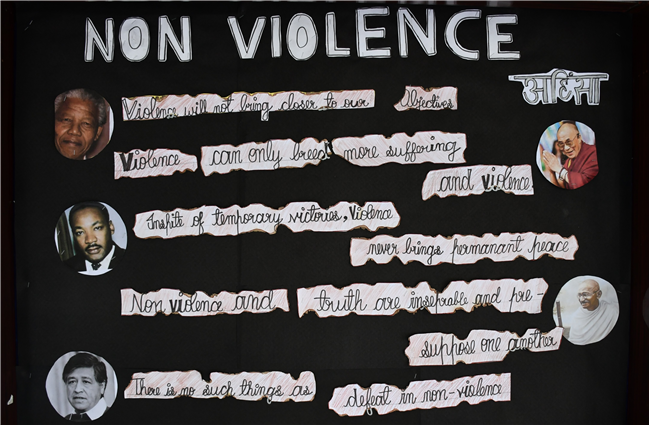 NON VIOLENCE
अहिंसा
Violence will not bring closer to our Objectives
Violence can only breed more suffering
and violence
Inspite of temporary victories, Violence
never brings permanant peace
Non violence and truth are inseprable and pre-
suppose one another
There is no such things as defeat in non-violence